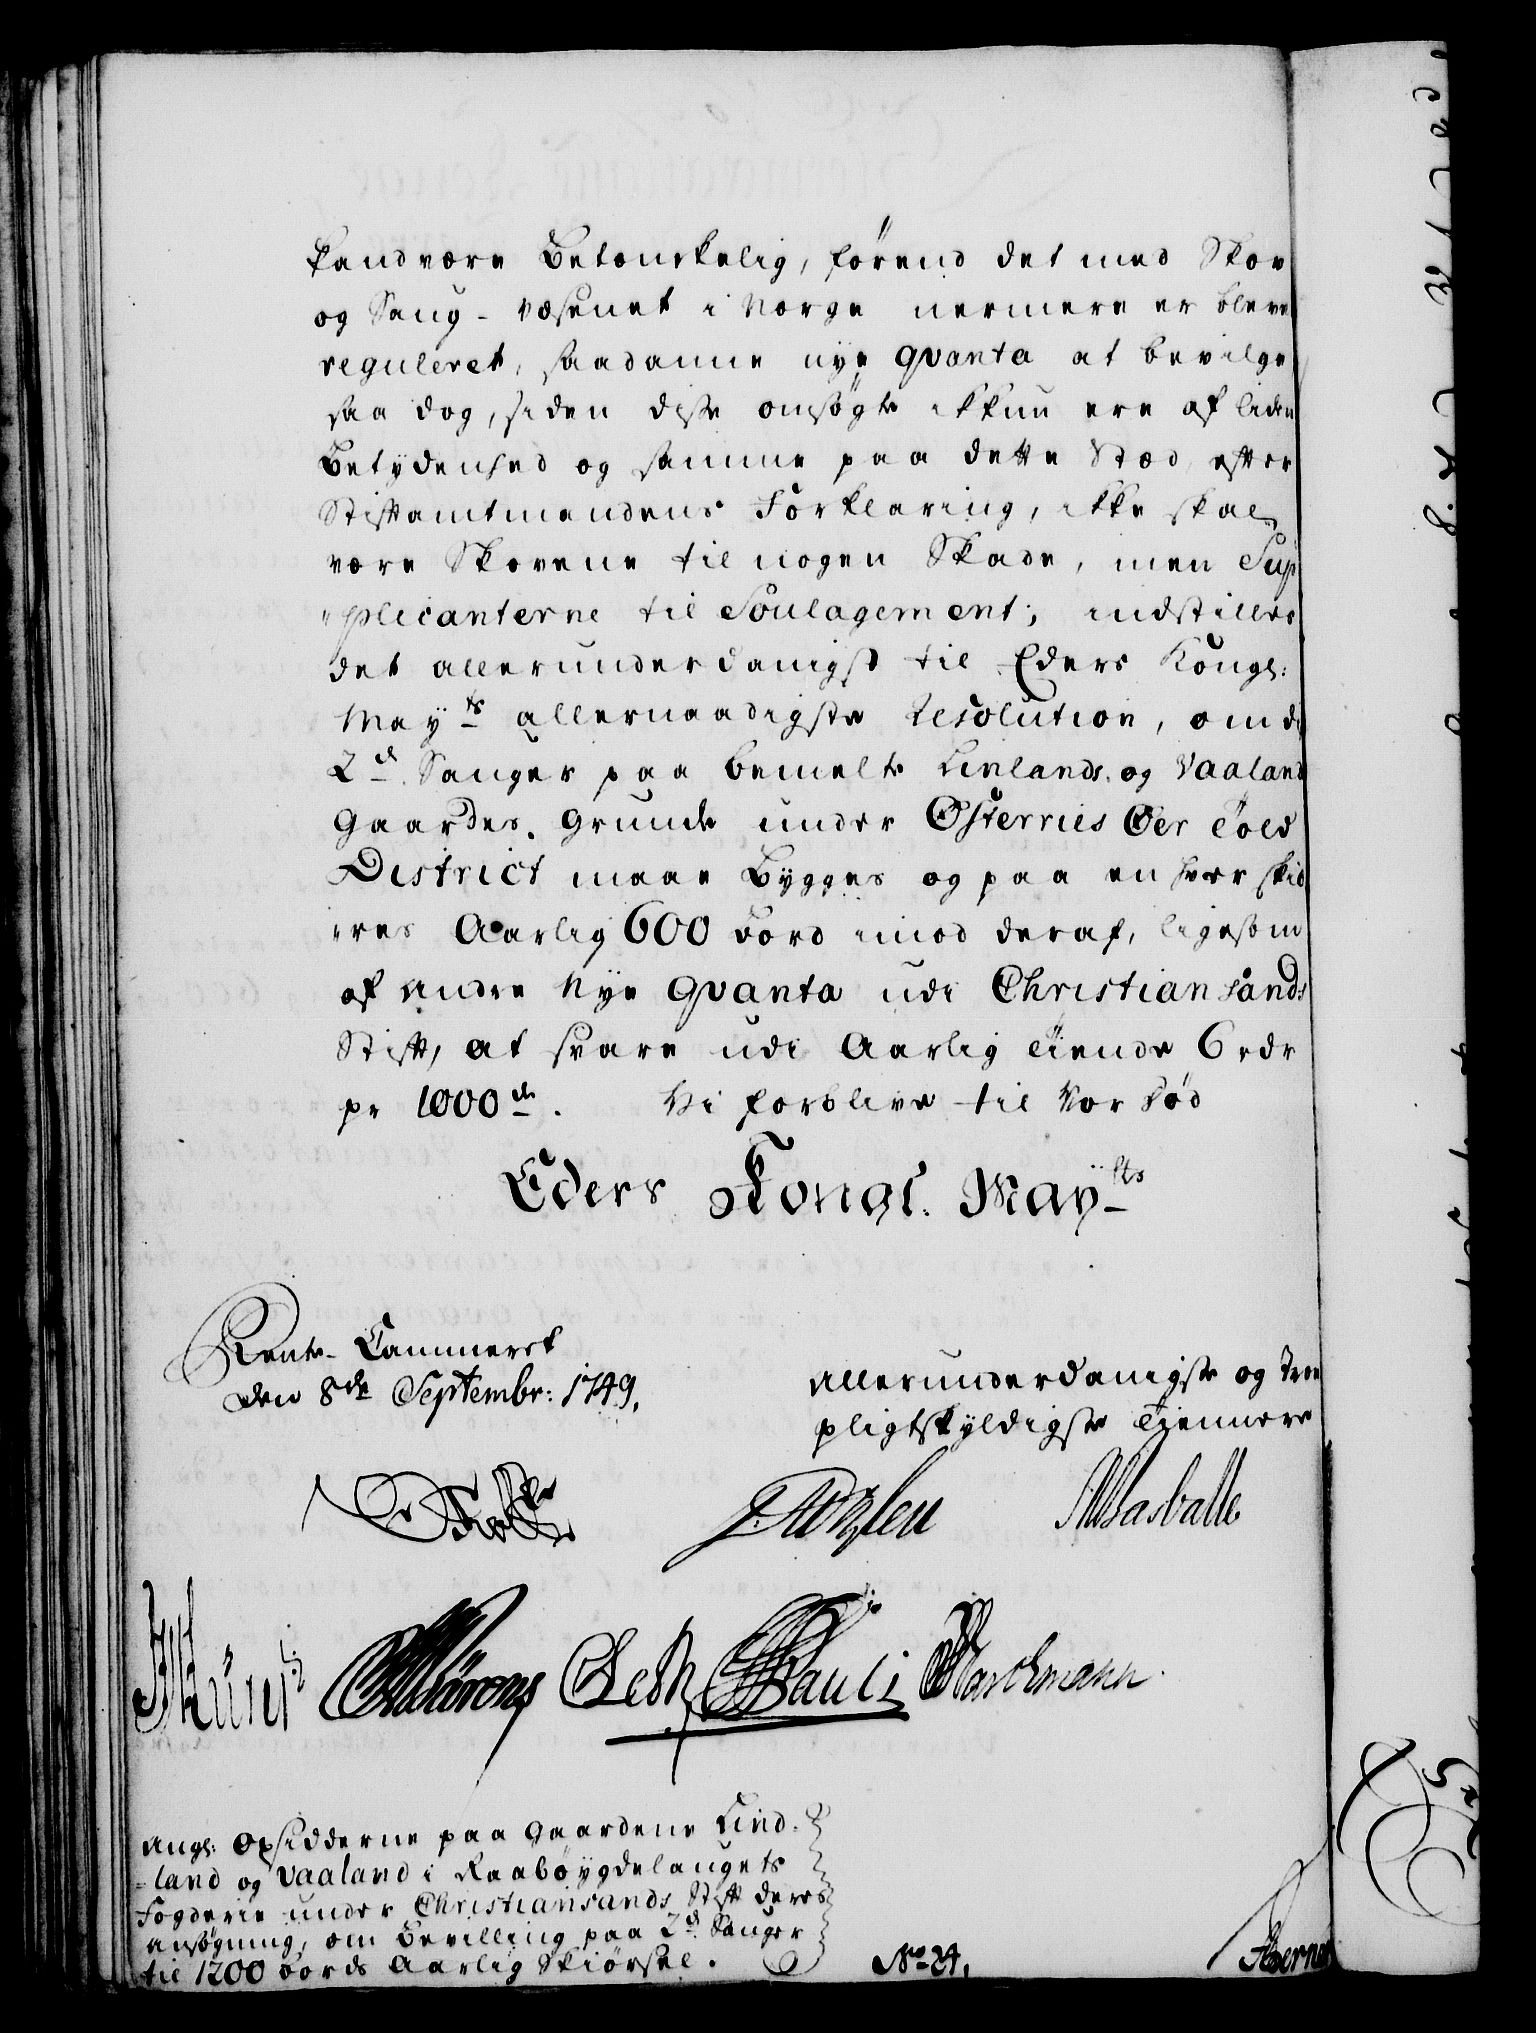 kand være Betænkelig, førend det med Skov
og Saug-Væsenet i Norge nermere er bleve
reguleret, saadanne nye qvanta at bevilge
saa dog, siden disse ansøgte ikkun ere af liden
Betydenhed og samme paa dette Stæd, efter
Stiftamtmandens Forklaring, ikke skal
være Skovene til nogen Skade, men Sup
plicanterne til Soulagement; indstilles
det allerunderdanigst til Eders Kongl:
Mayts allernaadigste Resolution, om de
2de Sauger paa bemelte Linlands og Vaaland
Gaardes Grunde under Østerriis Øer Told
District maae Bygges og paa en hver skiæ
res Aarlig 600 Bord imod deraf, ligesom
af andre Nye qvanta udi Christiansands
Stift, at svare udi Aarlig Tiende 6 rdr
pr 1000de. Vi forblive til Vor Død
Eders Kongl. Mayts
Rente-Cammeret
den 8de Septembr: 1749.
Allerunderdanigste og Troe
pligtskyldigste Tiennere
Pauli
Ang: Opsidderne paa Gaardene Lind-
land og Vaaland i Raabøygdelaugets
Fogderie under Christiansands Stift deres
ansøgning, om Bevilling paa 2de Sauger
til 1200 Bords Aarlig Skiørsel.
No 24.